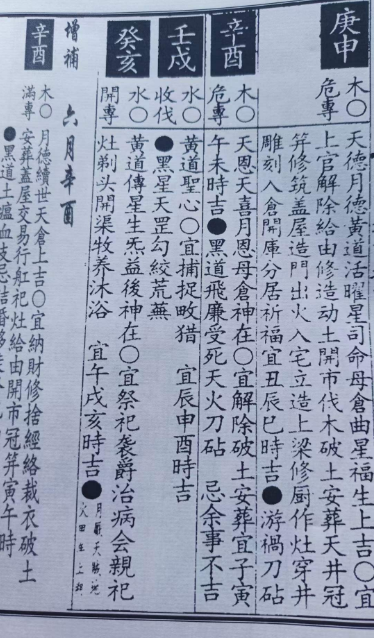 庚申
木○
危專
天德月德黃道活曜星司命母倉曲星福生上吉○宜
上官解除給由修造动土開市伐木破土安葬天井冠
笄修筑盖屋造門出火入宅立造上梁修厨作灶穿井
雕刻入倉開庫分居祈福宜丑辰巳時吉●游禍刀砧
辛酉
木○
危專
天恩天喜月恩母倉神在○宜解除破土安葬宜子寅
午未時吉●黑道飛廉受死天火刀砧 忌余事不吉
壬戌
水○
收伐
黃道聖心○宜捕捉畋猎 宜辰申酉時吉
●黑星天罡勾絞荒蕪
癸亥
水○
開專
黃道傳星生炁益後神在○宜祭祀袭爵治病会親祀
灶剃头開渠牧养沐浴 宜午戌亥時吉●月厭天賊
增補 六月辛酉
辛酉
木○
滿專
月德續世天倉上吉○宜納財修捨經絡裁衣破土
安葬蓋屋交易行船祀灶給由開市冠笄寅午時
●黑道土瘟血支忌結婚移